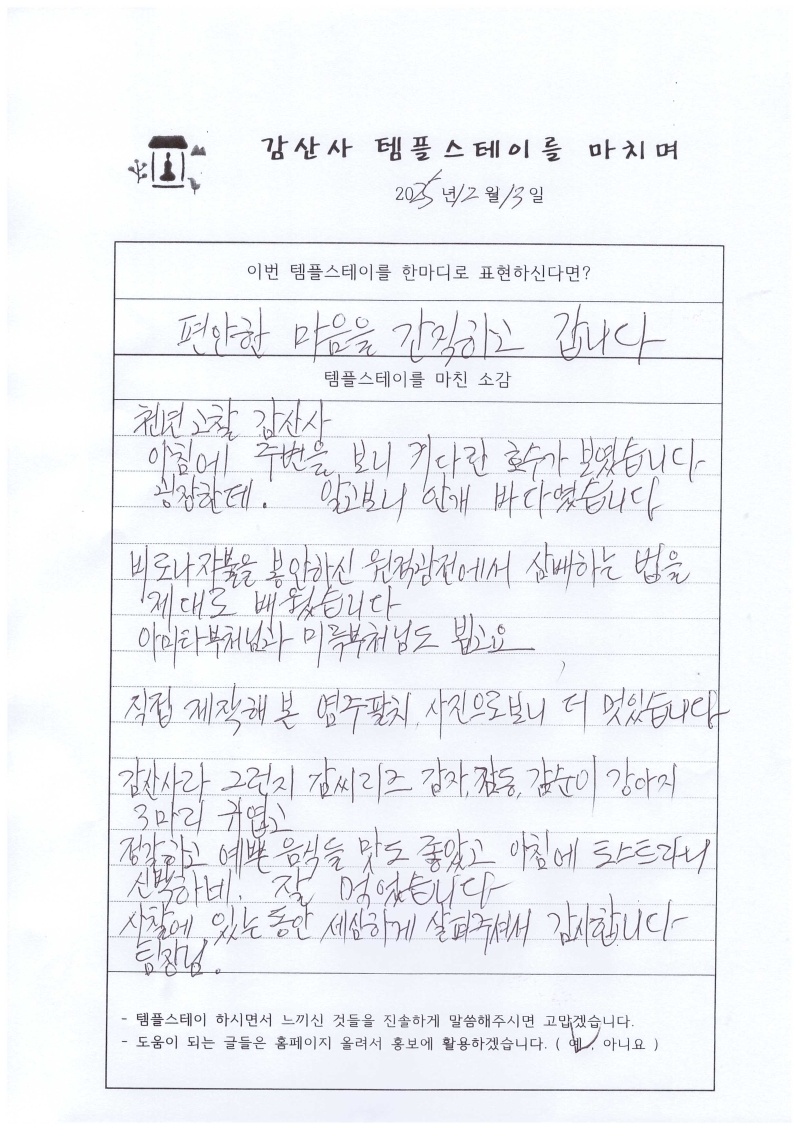 감산사 템플스테이를 마치며
2025년 12월 13일
이번 템플스테이를 한마디로 표현하신다면?
편안한 마음을 간직하고 갑니다
템플스테이를 마친 소감
천년고찰 감산사
아침에 주변을 보니 커다란 호수가 보였습니다
굉장한데. 알고보니 안개 바다였습니다
비로나자불을 봉안하신 원적광전에서 삼배하는 법을
제대로 배웠습니다
아미타부처님과 미륵부처님도 뵙고요
직접 제작해 본 염주팔찌, 사진으로보니 더 멋있습니다
감산사라 그런지 감씨리즈 감자, 감동, 감순이 강아지
3마리 귀엽고
정갈하고 예쁜 음식들 맛도 좋았고 아침에 토스트라니
신박하네. 잘 먹었습니다
사찰에 있는동안 세심하게 살펴주셔서 감사합니다
팀장님.
- 템플스테이 하시면서 느끼신 것들을 진솔하게 말씀해주시면 고맙겠습니다.
- 도움이 되는 글들은 홈페이지 올려서 홍보에 활용하겠습니다. ( 예 , 아니요 )